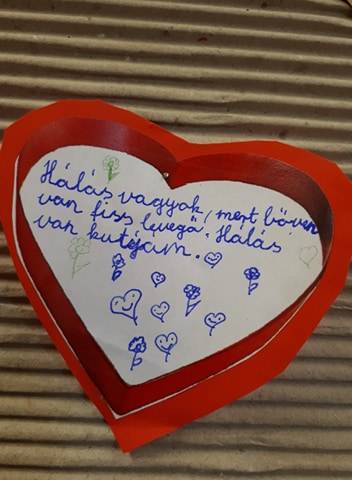 Hálás vagyok, mert bőven
van fiss levegő. Hálás
van kutyám.